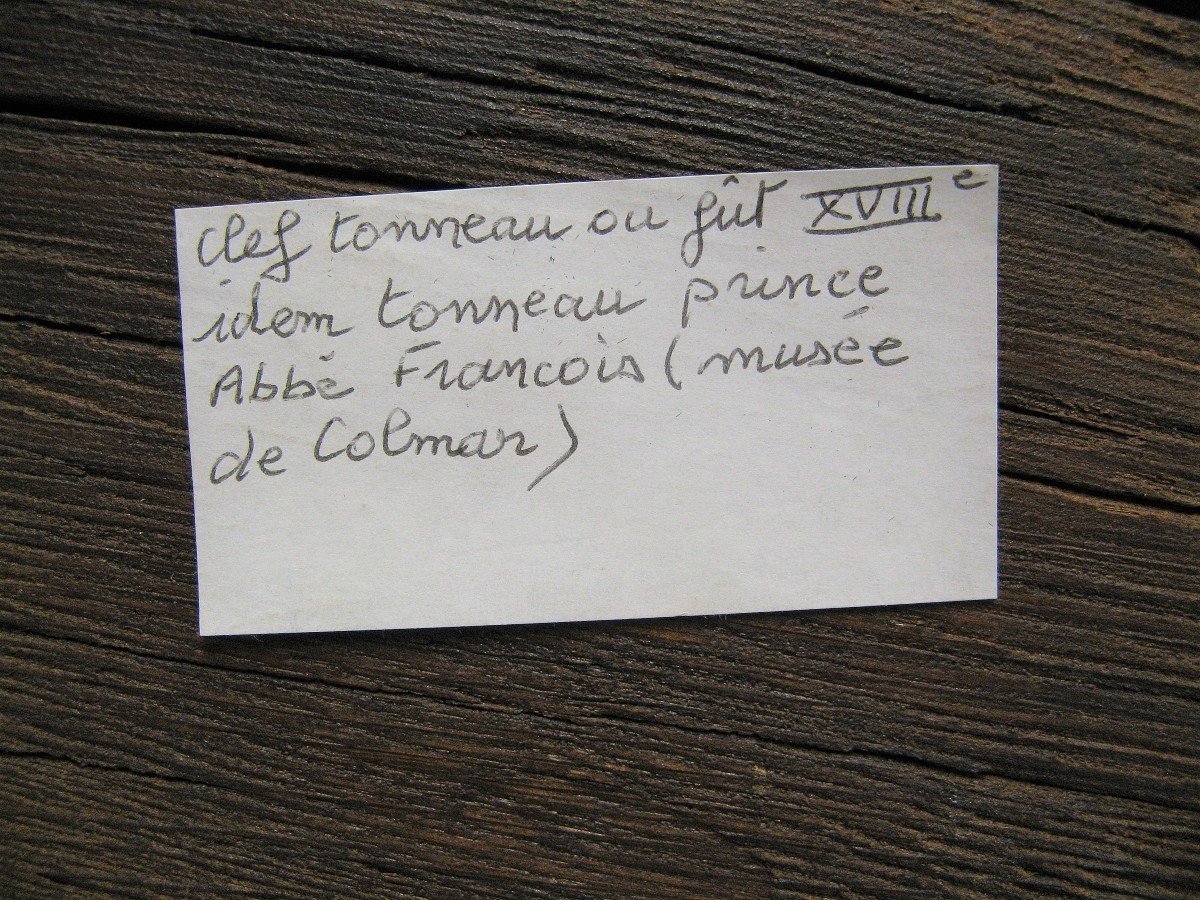 clef tonneau ou fût XVIIIe
idem tonneau prince
Abbé Francois (musée
de Colmar)